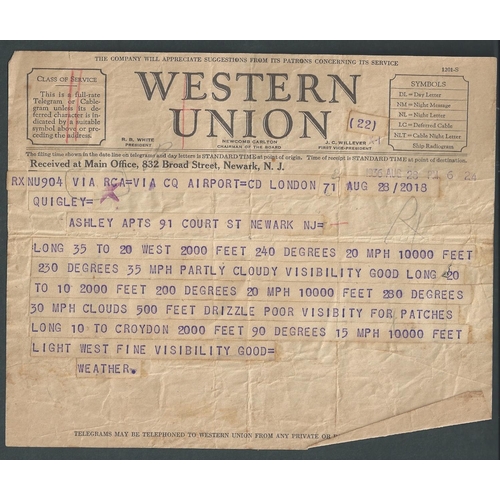 THE COMPANY WILL APPRECIATE SUGGESTIONS FROM ITS PATRONS CONCERNING ITS SERVICE
1201-S
CLASS OF SERVICE
This is a full-rate
Telegram or Cable-
gram unless its de-
ferred character is in-
dicated by a suitable
symbol above or pre-
ceding the address.
WESTERN
UNION
(22)
R. B. WHITE
PRESIDENT
NEWCOMB CARLTON
CHAIRMAN OF THE BOARD
J. C. WILLEVER
FIRST VICE-PRESIDENT
SYMBOLS
DL = Day Letter
NM = Night Message
NL = Night Letter
LC = Deferred Cable
NLT = Cable Night Letter
Ship Radiogram
The filing time shown in the date line on telegrams and day letters is STANDARD TIME at point of origin. Time of receipt is STANDARD TIME at point of destination.
Received at Main Office, 832 Broad Street, Newark, N. J.
1936 AUG 28 PM 6 24
RXNU904 VIA RCA=VIA CQ AIRPORT=CD LONDON 71 AUG 28/2018
QUIGLEY=
ASHLEY APTS 91 COURT ST NEWARK NJ=
LONG 35 TO 20 WEST 2000 FEET 240 DEGREES 20 MPH 10000 FEET
230 DEGREES 35 MPH PARTLY CLOUDY VISIBILITY GOOD LONG 20
TO 10 2000 FEET 200 DEGREES 20 MPH 10000 FEET 280 DEGREES
30 MPH CLOUDS 500 FEET DRIZZLE POOR VISIBITY FOR PATCHES
LONG 10 TO CROYDON 2000 FEET 90 DEGREES 15 MPH 10000 FEET
LIGHT WEST FINE VISIBILITY GOOD=
WEATHER.
TELEGRAMS MAY BE TELEPHONED TO WESTERN UNION FROM ANY PRIVATE OR